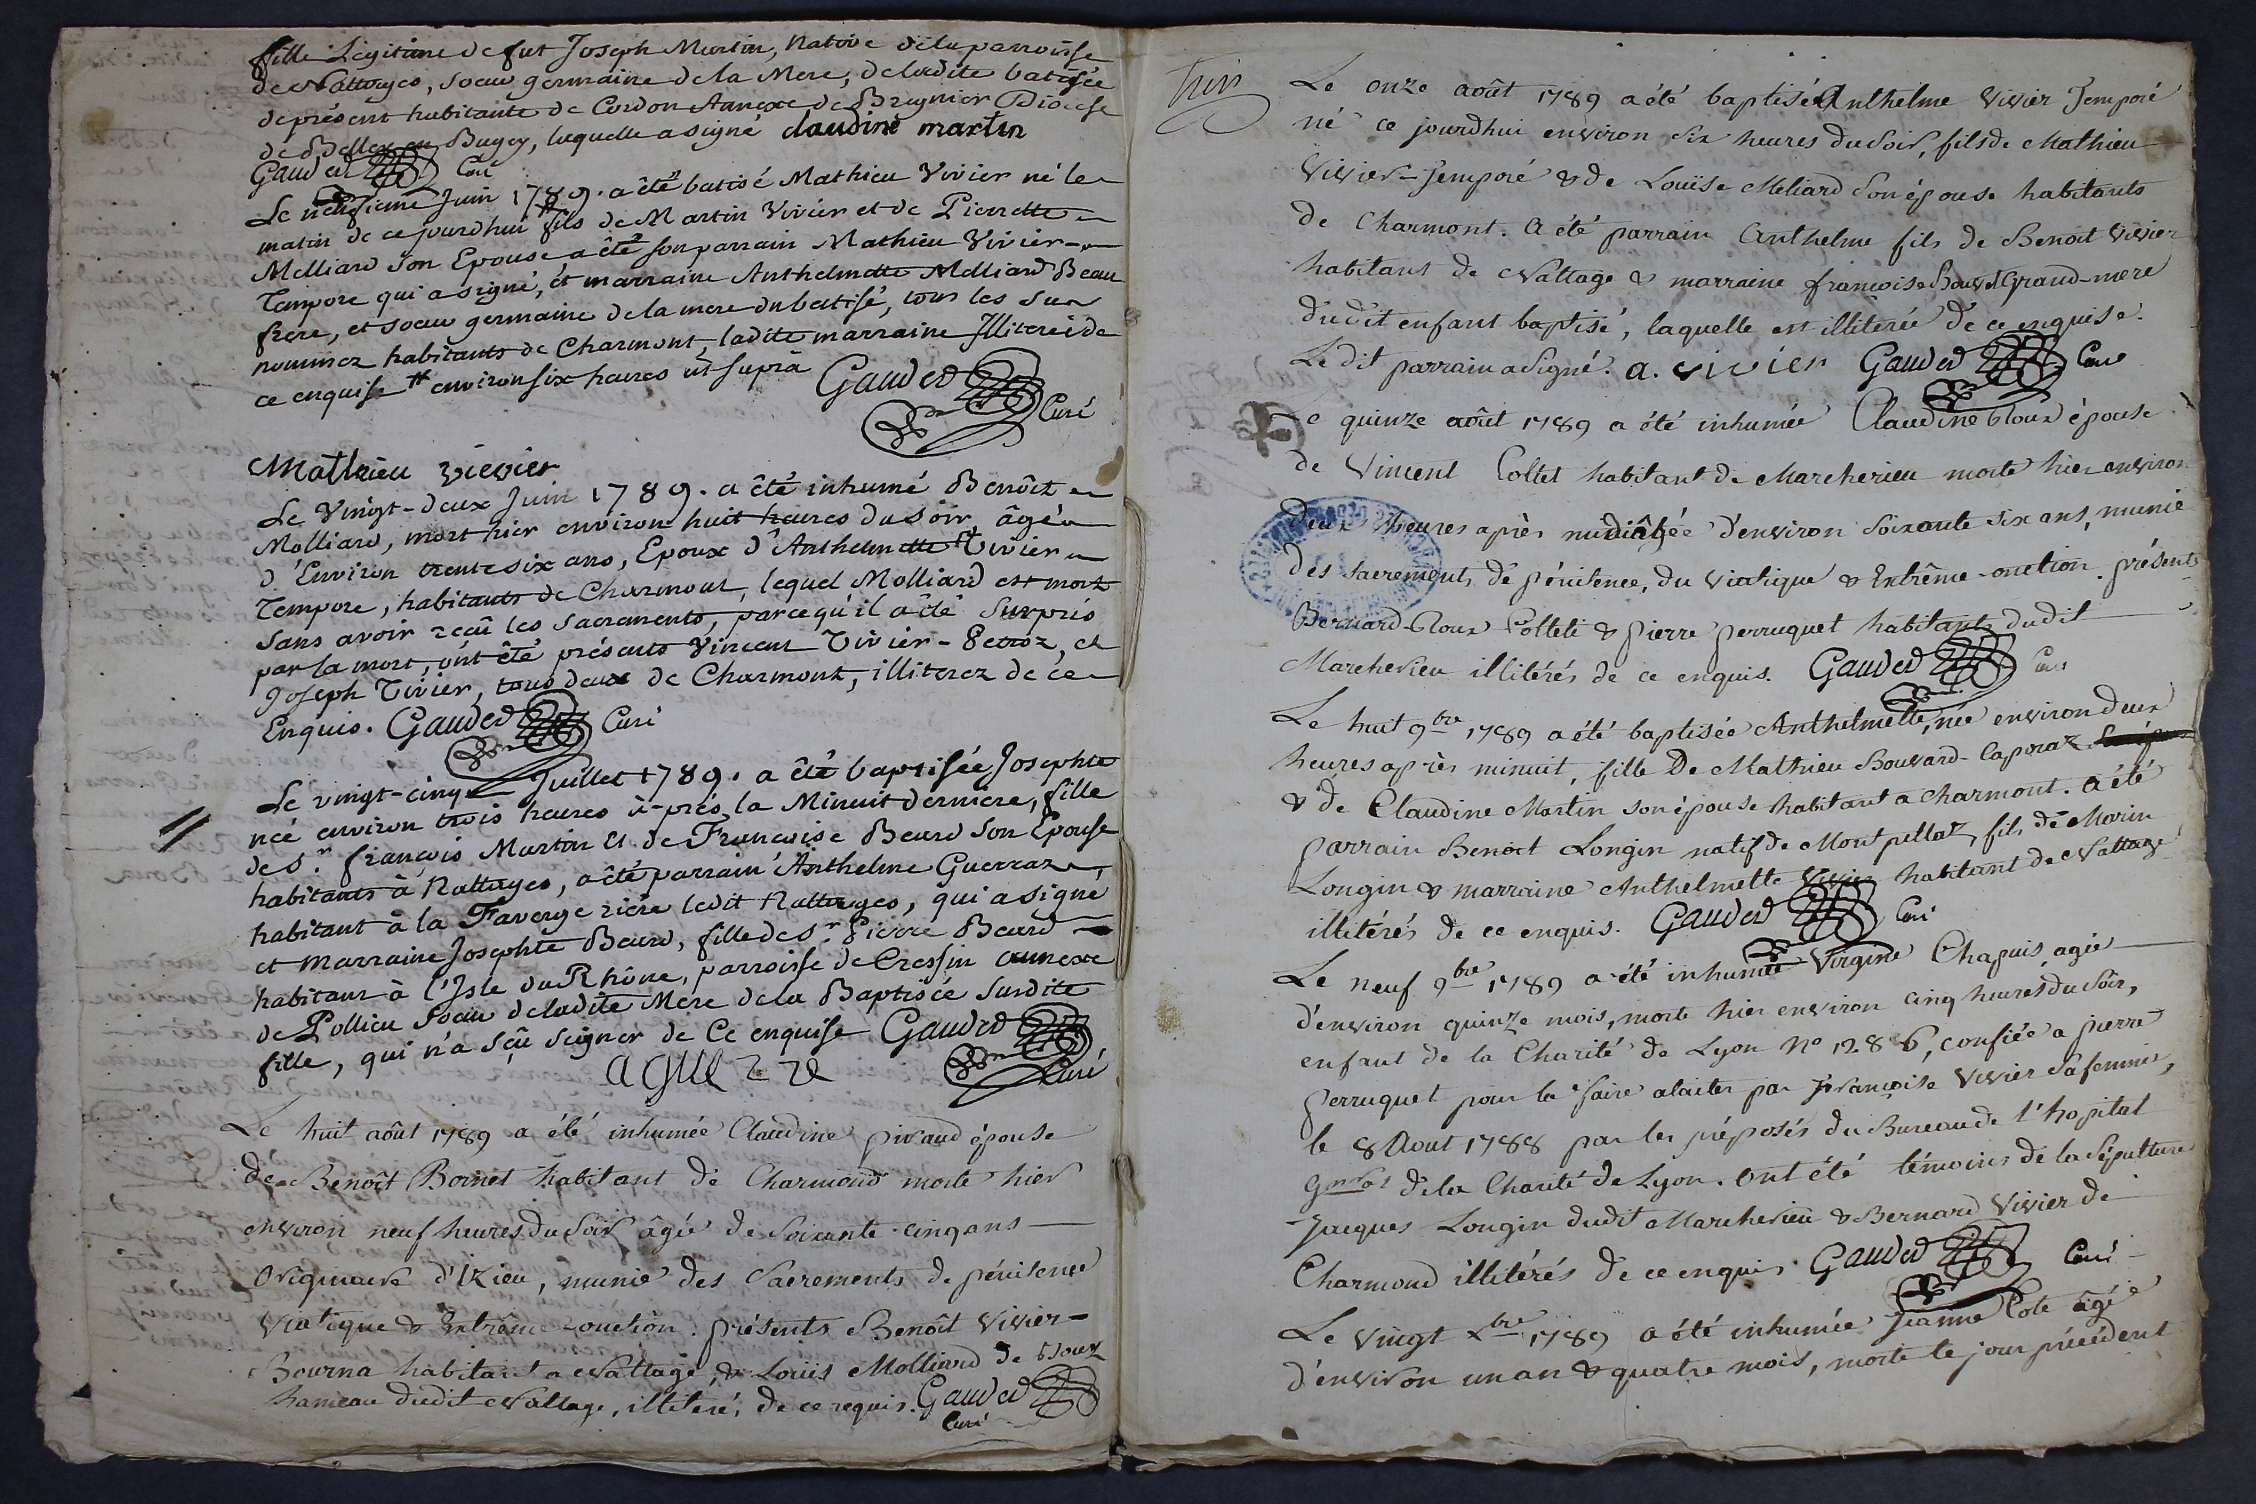 fille Légitime de fut Joseph Martin, native de la parroisse
de Nattages, soeur germaine de la Mere, de ladite batisée
de présent habitante de Cordon Annexe de Bregnier Diocese
de Belley en Bugey, laquelle a signé claudine martin
Gauded Curé
Le neufieme Juin 1789. a êté batisé Mathieu Vivier né le
matin de ce jourdhui # fils de Martin Vivier et de Pierrette
Melliard son Epouse a êté son parrain Mathieu Vivier
Tempore qui a signé, et marraine Anthelmette Melliard Beau
frere, et soeur germaine de la mere du batisé, tous les sus
nommez habitants de Charmont, ladite marraine Illiterée de
ce enquise # environ six heures ut suprà Gauded
Curé
Mathieu vievier
Le Vingt-deux Juin 1789. a êté inhumé Benôit
Molliard, mort hier environ huit heures du soir, âgé
d'Environ trente six ans, Epoux d'Anthelmette Vivier
Tempore, habitants de Charmont, lequel Molliard est mort
sans avoir reçû les Sacrements, parcequ'il a êté surpris
par la mort, ont êté présents Vincent Vivier - Petroz, et
Joseph Vivier, tous deux de Charmont, illiterez de ce
Enquis. Gauded Curé
Le vingt-cinq Juillet 1789. a êté baptisée Josephte
née environ trois heures à-près la Minuit derniere, fille
de Sr. françois Martin et de Françoise Beard son Epouse
habitants à Nattages, a êté parrain Anthelme Guerraz
habitant à la Faverge riere ledit Nattages, qui a signé
et Marraine Josephte Beard, fille de Sr. Pierre Beard
habitant à l'Isle du Rhône, parroisse de Cressin annexe
de Pollieu soeur de ladite Mere de la Baptisée susdite
fille, qui n'a sçû seigner de Ce enquise Gauded
Curé
Le huit août 1789 a été inhumée Claudine pivaud épouse
de Benoît Boinet habitant de Charmond morte hier
environ neuf heures du Soir âgée de Soixante-cinq ans
Originaire d'Izieu, munie des Sacrements de pénitence
viatique & Extrême-onction. présents Benoît Vivier-
Bourna habitant a Nattage, & Louis Molliard de
hameau dudit Nattage, illiteré, de ce requis. Gauded
Curé
Le onze août 1789 a été baptisé Anthelme Vivier Jemporé
né ce jourdhui environ Six heures du Soir, fils de Mathieu
Vivier-Jemporé & de Louise Meliard Son épouse habitants
de Charmont. a été parrain Anthelme fils de Benoit Vivier
habitant de Nattage & marraine françoise Grand-mere
dudit enfant baptisé, laquelle est illiterée de ce enquise.
Le dit parrain a Signé. a. vivier Gauded Curé
Le quinze août 1789 a été inhumée Claudine Roux épouse
de Vincent Collet habitant de Marcherieu morte hier environ
deux heures après midi âgée d'environ Soixante six ans, munie
des Sacrements de pénitence, du viatique & Extrême-onction. présents
Bernard Roux Colleti & pierre perruquet habitants dudit
Marcherieu illitérés de ce enquis. Gauded Curé
Le huit 9bre 1789 a été baptisée Anthelmette, née environ deux
heures après minuit, fille De Mathieu Bouvard-Caporaz
& de Claudine Martin son épouse habitant a Charmont. a été
parrain Benoit Longin natif de Montpellaz, fils de Marin
Longin & marraine Anthelmette Vivier habitant de Nattage
illitérés de ce enquis. Gauded Curé
Le neuf 9bre 1789 a été inhumée Virgine Chapuis, agée
d'environ quinze mois, morte hier environ cinq heures du Soir,
enfant de la Charité de Lyon No 1286, confiée a pierre
perruquet pour la faire alaiter par françoise Vivier Sa femme,
le 8 Aout 1788 par les préposés du Bureau de l'hopital
gnral de la Charité de Lyon. Ont été témoins de la Sépulture
Jacques Longin dudit Marcherieu & Bernard Vivier de
Charmond illitérés de ce enquis Gauded Curé
Le Vingt Xbre 1789 a été inhumée Jeanne Cote âgée
d'environ un an & quatre mois, morte le jour précédent